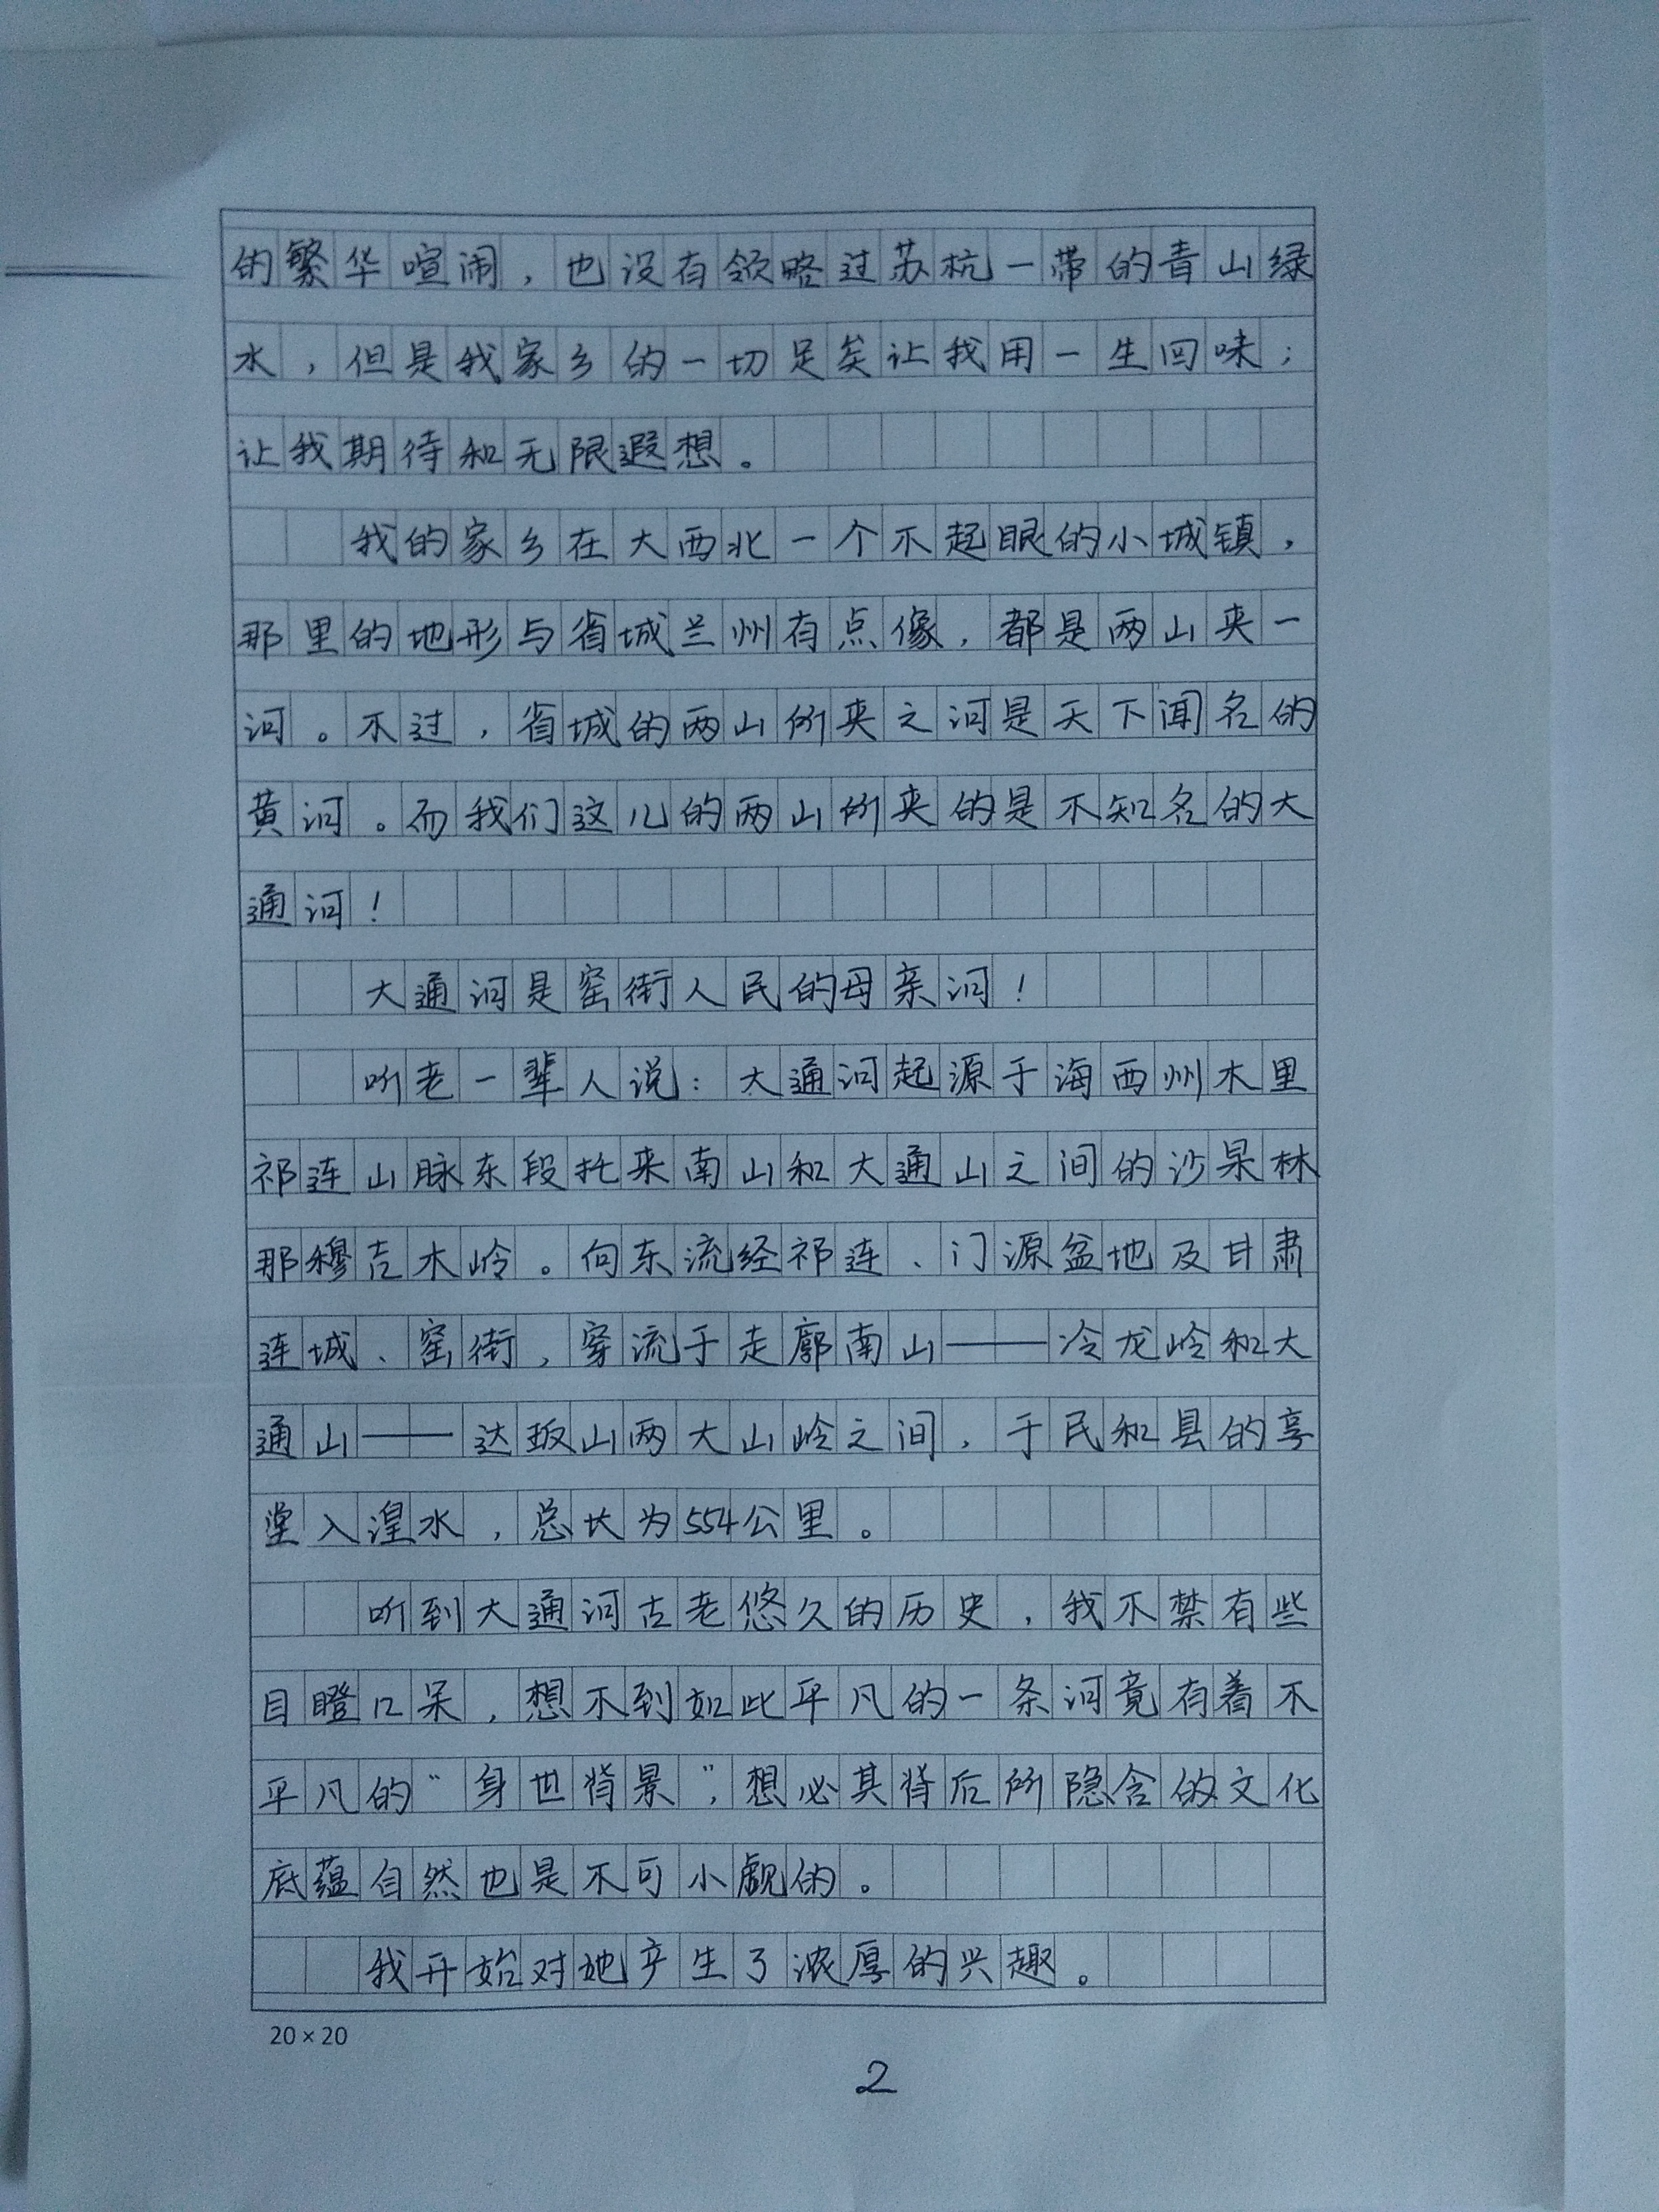 的繁华喧闹，也没有领略过苏杭一带的青山绿
水，但是我家乡的一切足矣让我用一生回味；
让我期待和无限遐想。
我的家乡在大西北一个不起眼的小城镇，
那里的地形与省城兰州有点像，都是两山夹一
河。不过，省城的两山所夹之河是天下闻名的
黄河。而我们这儿的两山所夹的是不知名的大
通河！
大通河是窑街人民的母亲河！
听老一辈人说：大通河起源于海西州木里
祁连山脉东段托来南山和大通山之间的沙杲林
那穆吉木岭。向东流经祁连、门源盆地及甘肃
连城、窑街，穿流于走廓南山——冷龙岭和大
通山——达坂山两大山岭之间，于民和县的享
堂入湟水，总长为554公里。
听到大通河古老悠久的历史，我不禁有些
目瞪口呆，想不到如此平凡的一条河竟有着不
平凡的“身世背景”，想必其背后所隐含的文化
底蕴自然也是不可小觑的。
我开始对她产生了浓厚的兴趣。
20×20
2